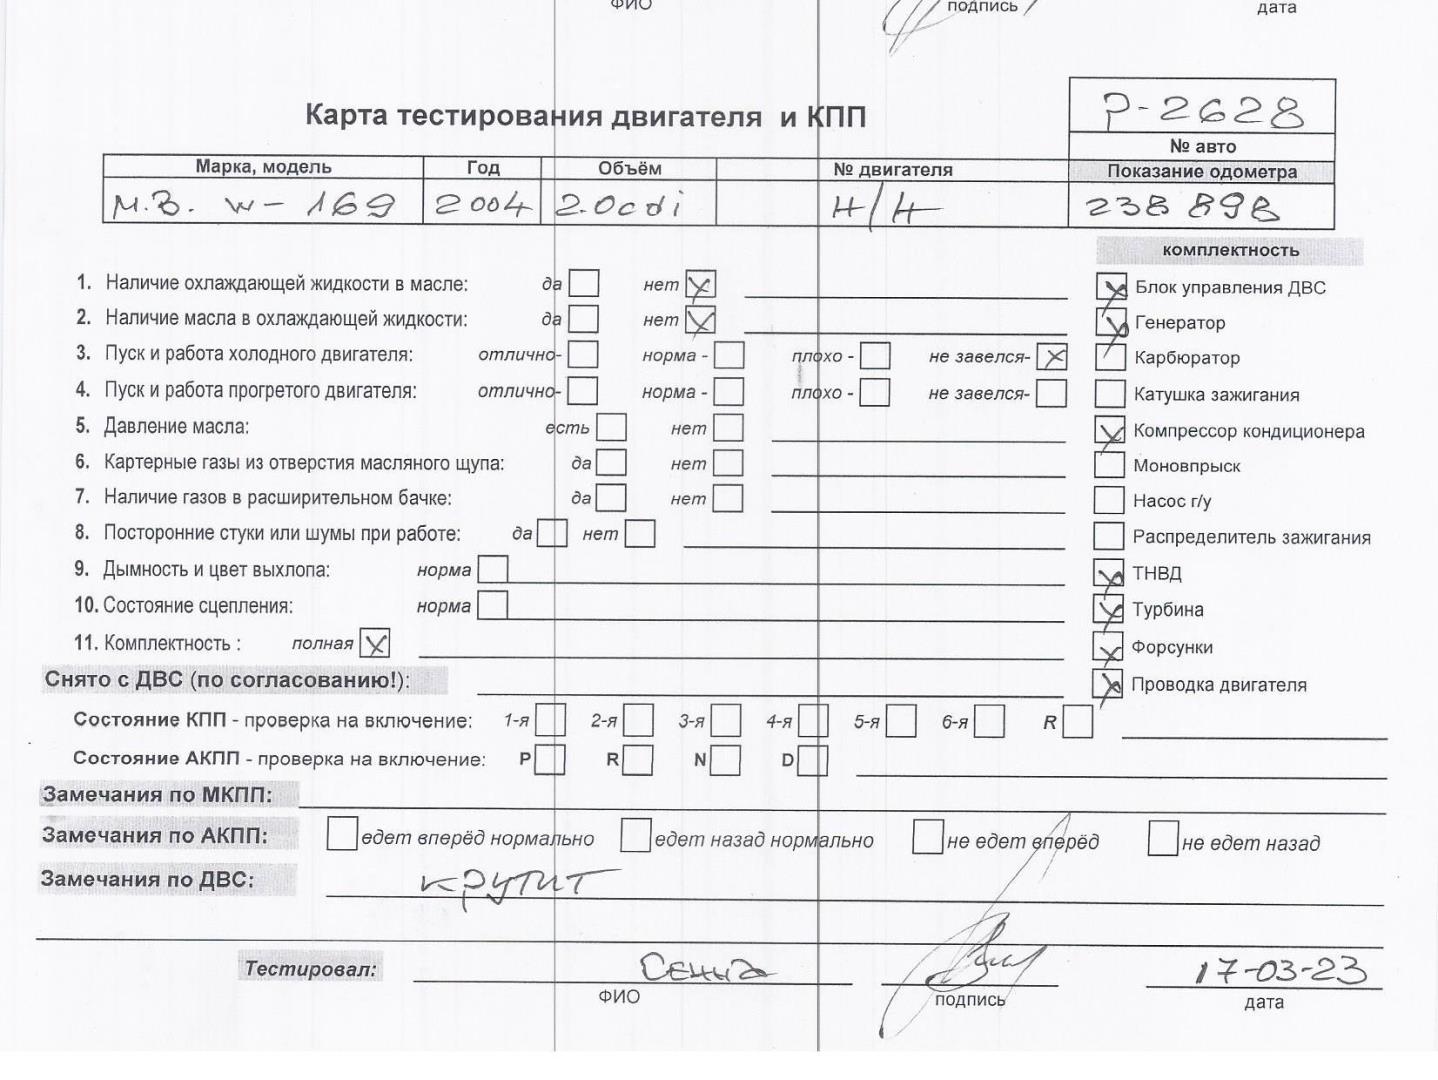 ФИО подпись дата
Карта тестирования двигателя и КПП
P-2628
№ авто
Марка, модель Год Объём № двигателя Показание одометра
М.В. W-169 2004 2.0cdi Н/Н 238 898
комплектность
1. Наличие охлаждающей жидкости в масле: да нет Блок управления ДВС
2. Наличие масла в охлаждающей жидкости: да нет Генератор
3. Пуск и работа холодного двигателя: отлично- норма - плохо - не завелся- Карбюратор
4. Пуск и работа прогретого двигателя: отлично- норма - плохо - не завелся- Катушка зажигания
5. Давление масла: есть нет Компрессор кондиционера
6. Картерные газы из отверстия масляного щупа: да нет Моновпрыск
7. Наличие газов в расширительном бачке: да нет Насос г/у
8. Посторонние стуки или шумы при работе: да нет Распределитель зажигания
9. Дымность и цвет выхлопа: норма ТНВД
10. Состояние сцепления: норма Турбина
11. Комплектность : полная Форсунки
Снято с ДВС (по согласованию!): Проводка двигателя
Состояние КПП - проверка на включение: 1-я 2-я 3-я 4-я 5-я 6-я R
Состояние АКПП - проверка на включение: P R N D
Замечания по МКПП:
Замечания по АКПП: едет вперёд нормально едет назад нормально не едет вперёд не едет назад
Замечания по ДВС: крутит
Тестировал: 17-03-23
ФИО подпись дата